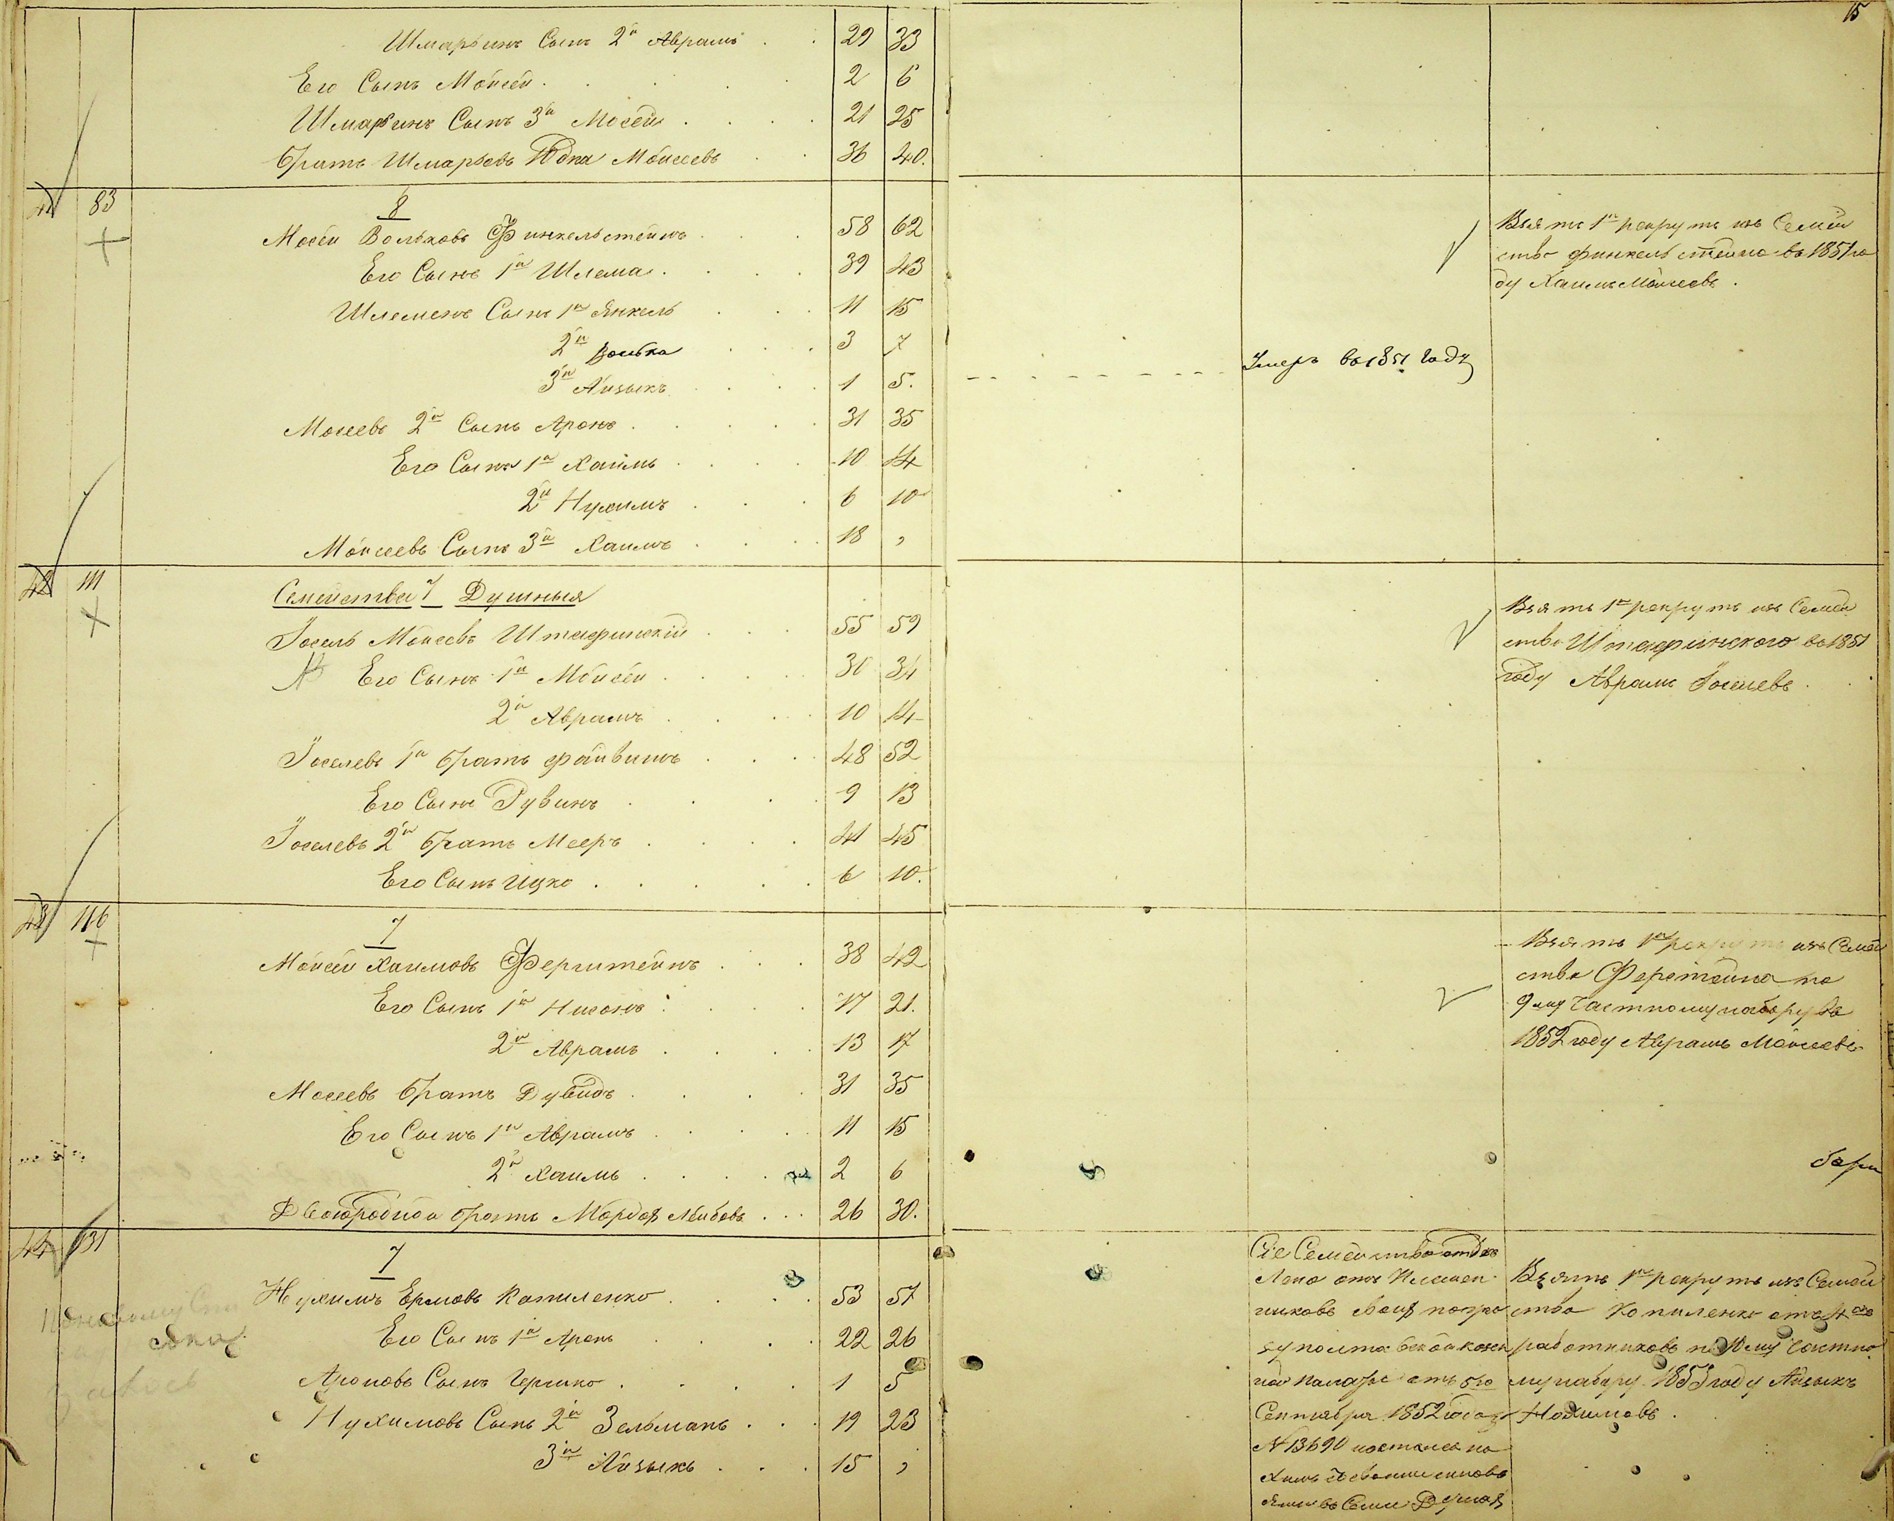 15
Шмарьинъ Сынъ 2й Аврамъ . . 29 33
Его Сынъ Мойсей . . . 2 6
Шмарьинъ Сынъ 3й Мосей . . . 21 25
Братъ Шмарьевъ Юдка Мойсеевъ . . 36 40.
41 83 8
Мосей Вольковъ Финкельштейнъ . . . 58 62
Его Сынъ 1й Шлема . . . . 39 43
Шлеминъ Сынъ 1й Янкель . . . 11 15
2й Волька . . . 3 7
3й Айзыкъ . . . 1 5.
Умеръ въ 1851 году
Мосеевъ 2й Сынъ Аронъ . . . . 31 35
Его Сынъ 1й Хаимъ . . . . 10 14
2й Нухимъ . . . 6 10
Мойсеевъ Сынъ 3й Хаимъ . . . . 18 ,
Взятъ 1й рекрутъ изъ Семей
ства Финкельштейна въ 1851 го
ду Хаимъ Мойсеевъ .
42 111 Семейства 7 Душныя
Іосель Мойсеевъ Штафинскій . . . 55 59
Его Сынъ 1й Мойсей . . . . 30 34
2й Аврамъ . . . . 10 14
Іоселевъ 1й братъ Файвишъ . . . 48 52
Его Сынъ Рувинъ . . . . 9 13
Іоселевъ 2й братъ Мееръ . . . . 41 45
Его Сынъ Ицко . . . . . 6 10.
Взятъ 1й рекрутъ изъ Семей
ства Штафинского въ 1851
году Аврамъ Іоселевъ .
43 116 7
Мойсей Хаимовъ Ферштейнъ . . . 38 42
Его Сынъ 1й Нисонъ . . . . 17 21.
2й Аврамъ . . . . 13 17
Мосеевъ братъ Дувидъ . . . . 31 35
Его Сынъ 1й Аврамъ . . . . 11 15
2й Хаимъ . . . . 2 6
Двоюродной братъ Мордох Лейбовъ . . . 26 30.
Взятъ 1й рекрутъ изъ Семей
ства Ферштейна по
9му Частному набору въ
1852 году Аврамъ Мойсеевъ
44 131 7
Нухимъ Ермовъ Копиленко . . . . 53 57
Его Сынъ 1й Аронъ . . . 22 26
Ароновъ Сынъ Гершко . . . . 1 5
Нухимовъ Сынъ 2й Зельманъ . . . 19 23
3й Айзыкъ . . . 15 ,
Сіе Семейство отде
лено отъ
Палаты отъ 5го
Сентября 1852 года
N 13690
Взятъ 1й рекрутъ изъ Семей
ства Копиленко отъ 4хъ
работниковъ по 10му Частно
му набору 1853 году Айзыкъ
Нохимовъ .